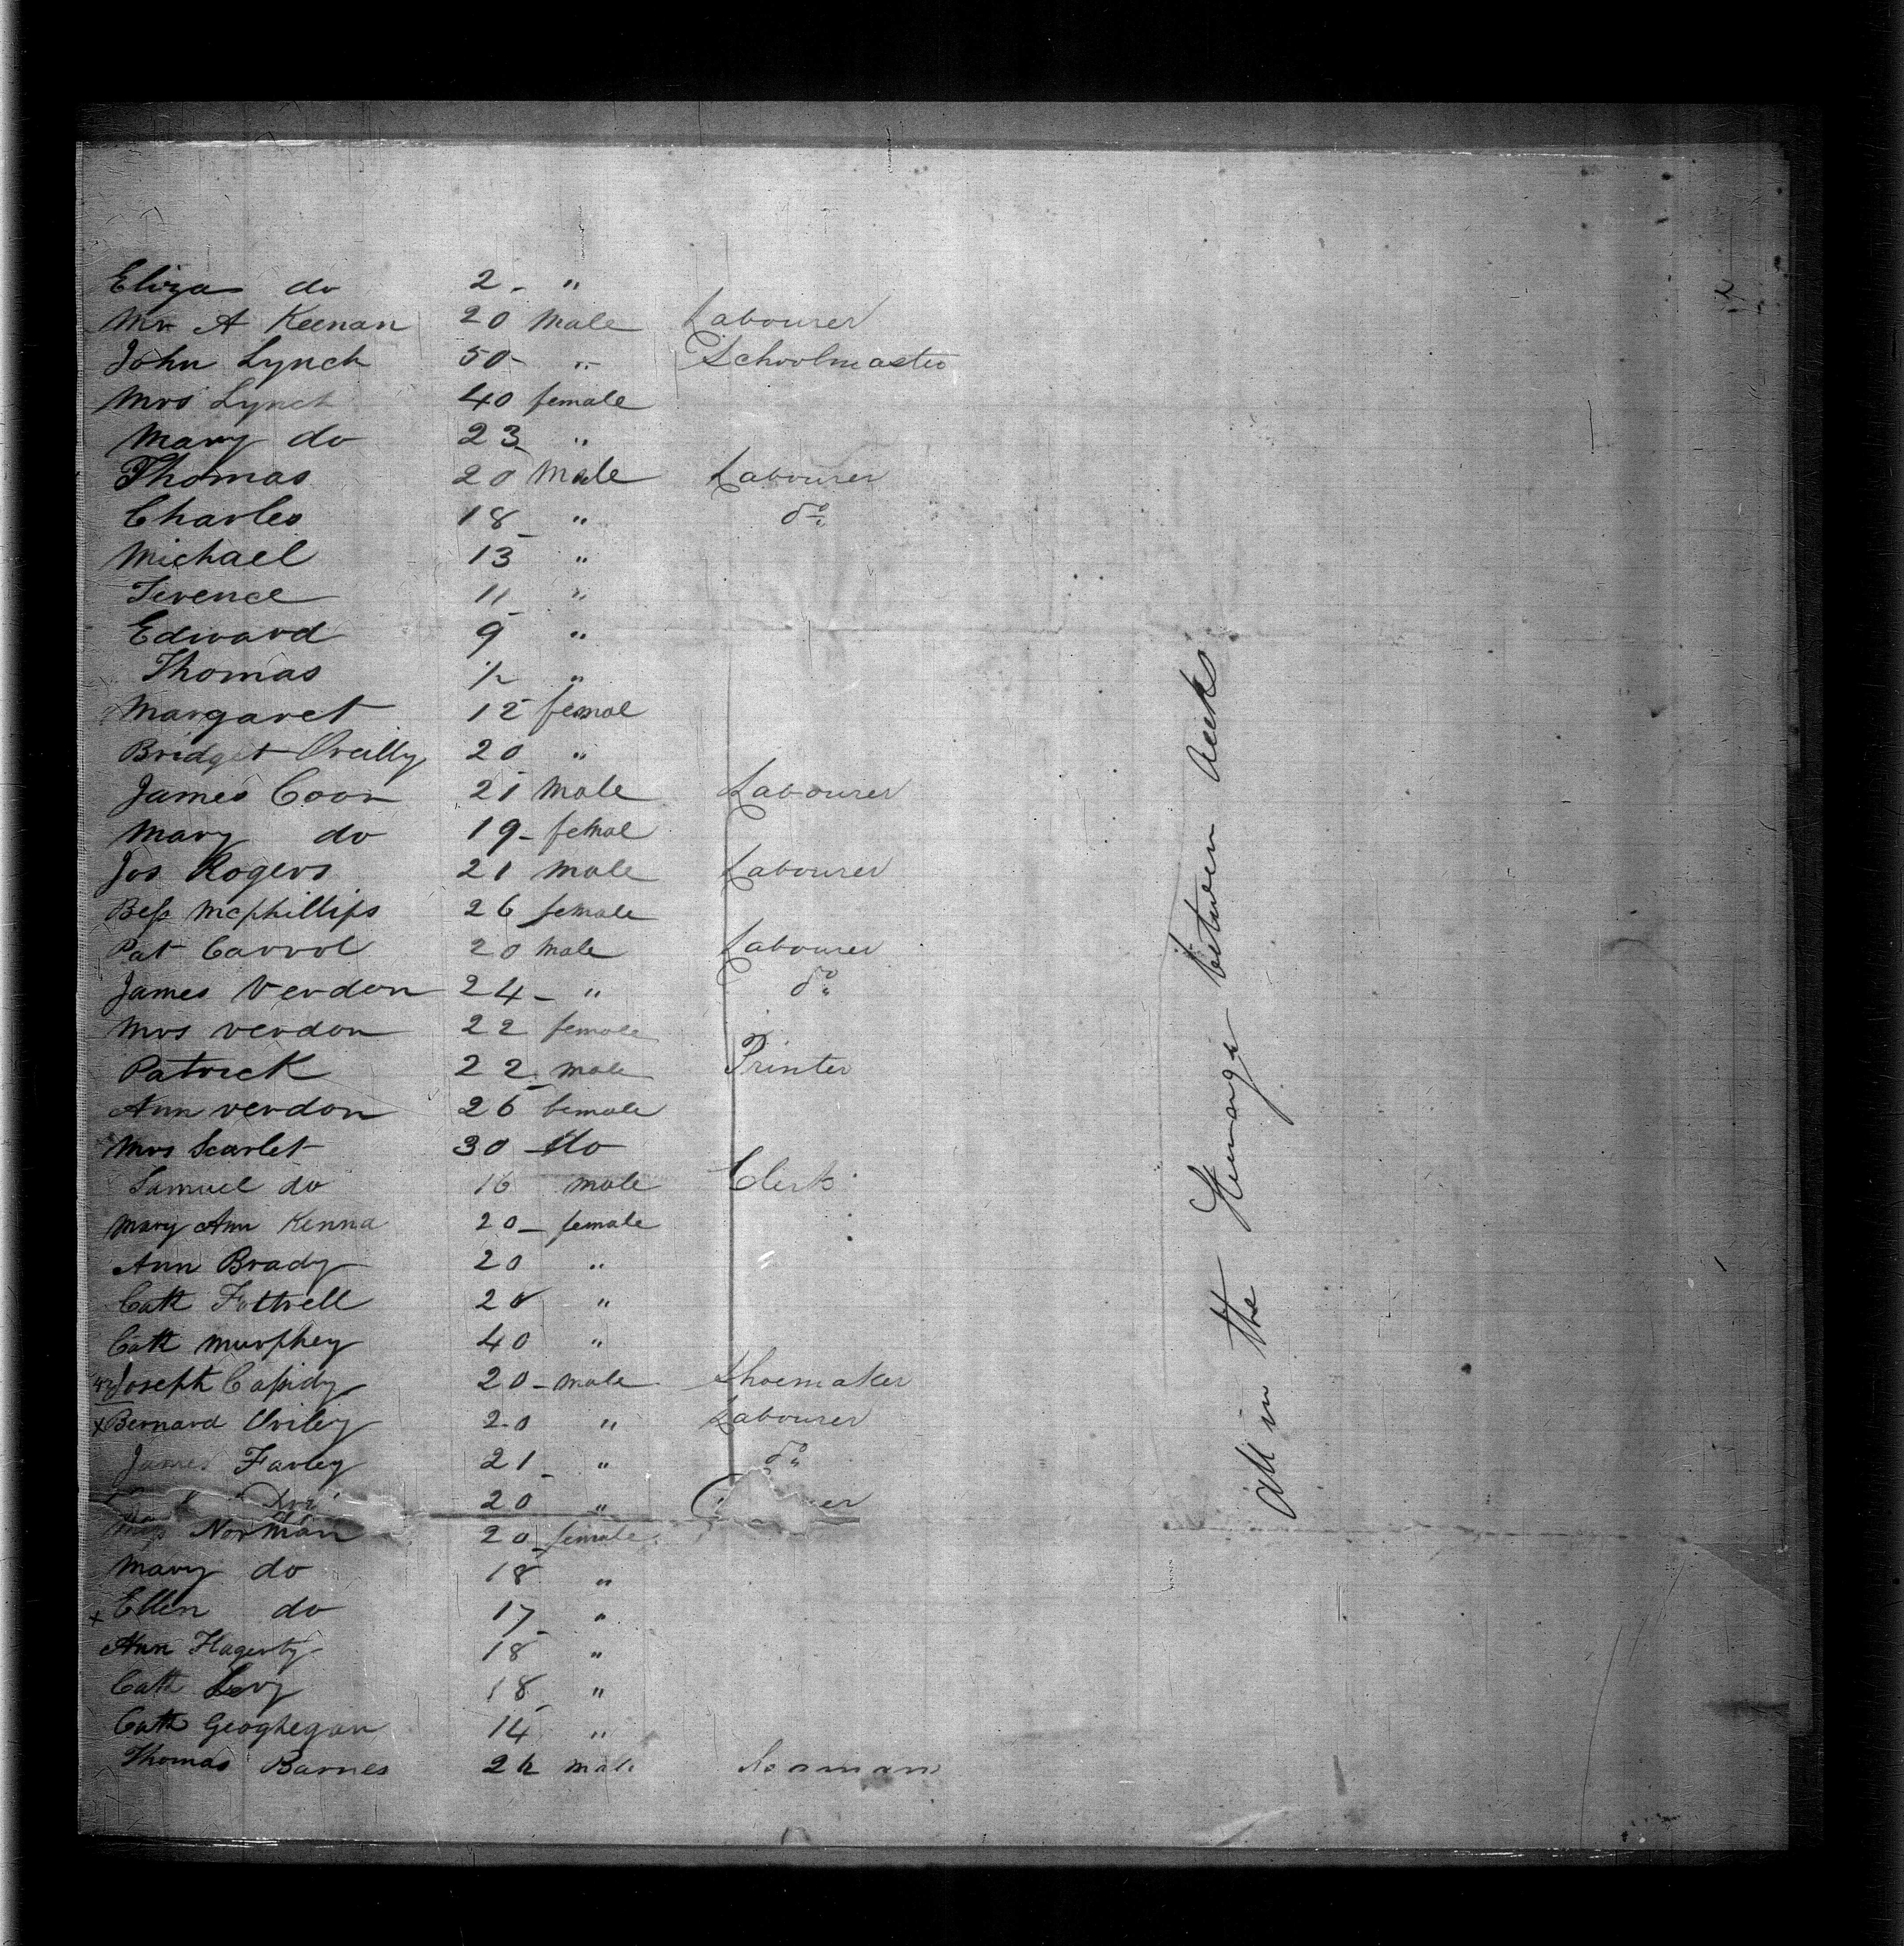 Eliza do 2 - "
Mr A Keenan 20 Male Labourer
John Lynch 50 - " Schoolmaster
Mrs Lynch 40 female
Mary do 23 "
Thomas 20 Male Labourer
Charles 18 " do
Michael 13 "
Terence 11 "
Edward 9 "
Thomas 1/2 "
Margaret 12 femal
Bridget Oreilly 20 "
James Coon 21 Male Labourer
Mary do 19 - femal
Jos Rogers 21 male Labourer
Bess Mcphillips 26 female
Pat Carrol 20 Male Labourer
James Verdon 24 - " do
Mrs Verdon 22 female
Patrick 22 male Printer
Ann Verdon 26 female
Mrs Scarlet 30 - do
Samuel do 16 male Clerk
Mary Ann Kenna 20 - female
Ann Brady 20 "
Cath Fottrell 20 "
Cath Murphey 40 "
Joseph Cassidy 20 - male Shoemaker
x Bernard Oriley 20 " Labourer
James Farley 21 " do
20 "
Norman 20 female
Mary do 18 "
x Ellen do 17 "
Ann Hagerty 18 "
Cath Levy 18 "
Cath Geoghegan 14 "
Thomas Barnes male
All in the Steerage between decks
2